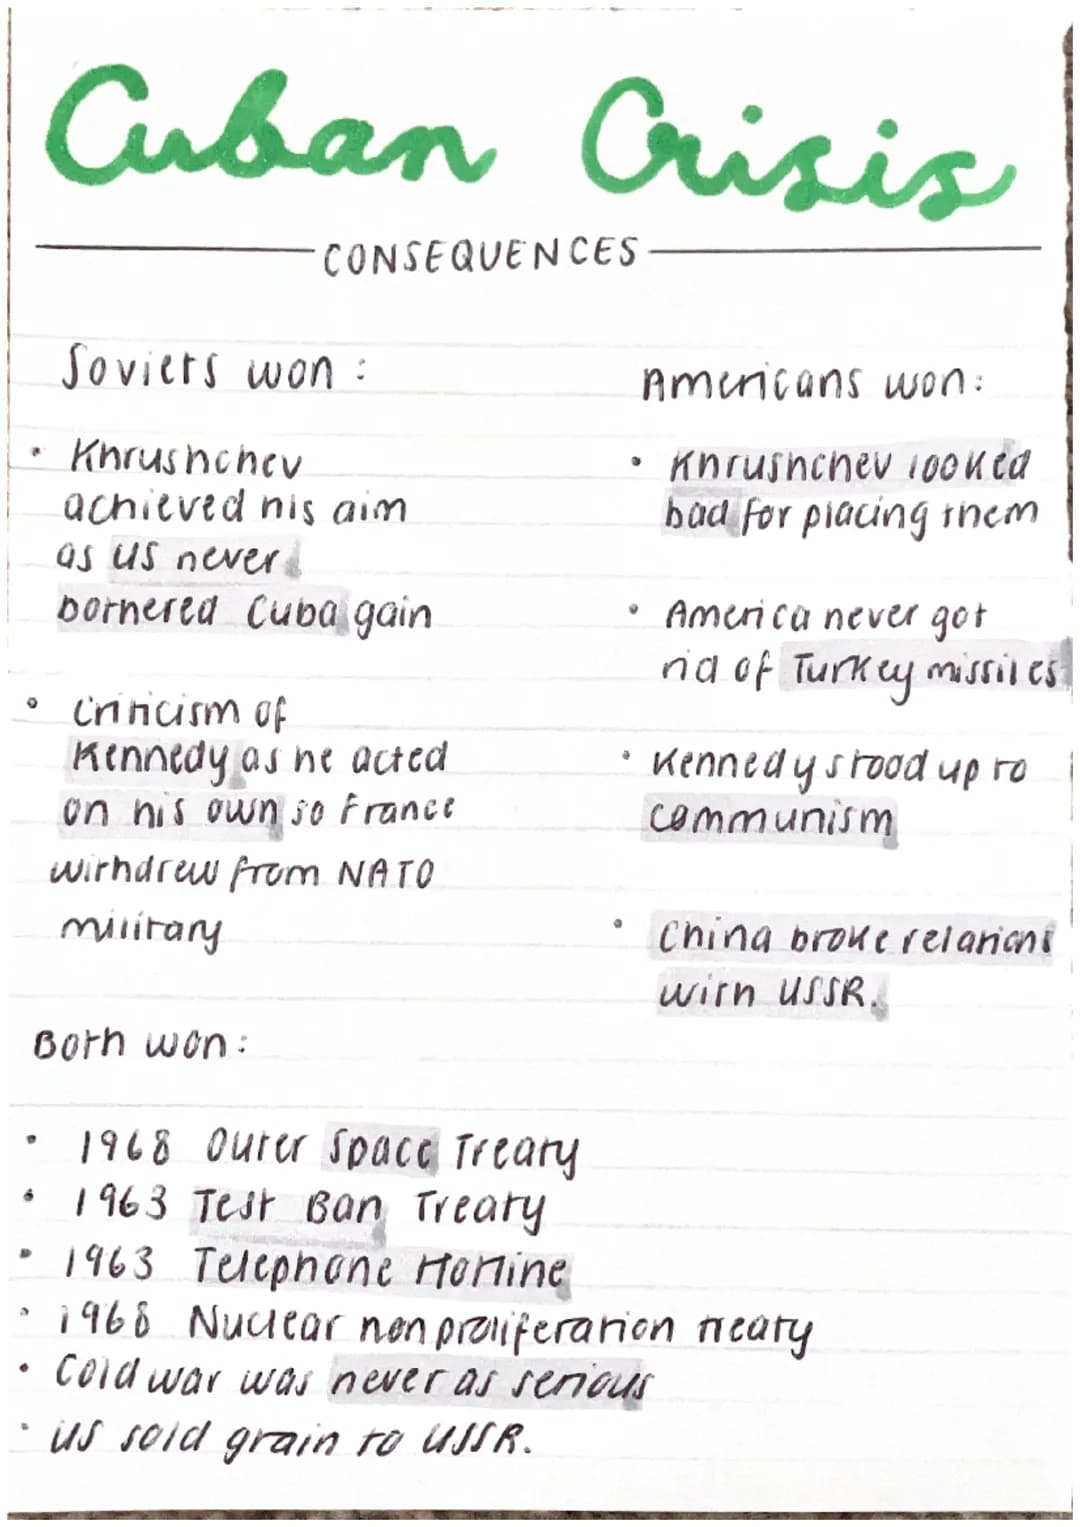 Cuban Crisis
CONSEQUENCES
Soviets won:
• Khrushchev
achieved his aim
as US never
bothered Cuba gain
• Criticism of
Kennedy as he acted
on his own so France
withdrew from NATO
military
Americans won:
• Khrushchev looked
bad for placing them
• America never got
rid of Turkey missiles
• Kennedy stood up to
communism
• China broke relations
with USSR.
Both won:
• 1968 Outer Space Treaty
• 1963 Test Ban Treaty
• 1963 Telephone Hotline
• 1968 Nuclear non proliferation treaty
• Cold war was never as serious
• US sold grain to USSR.